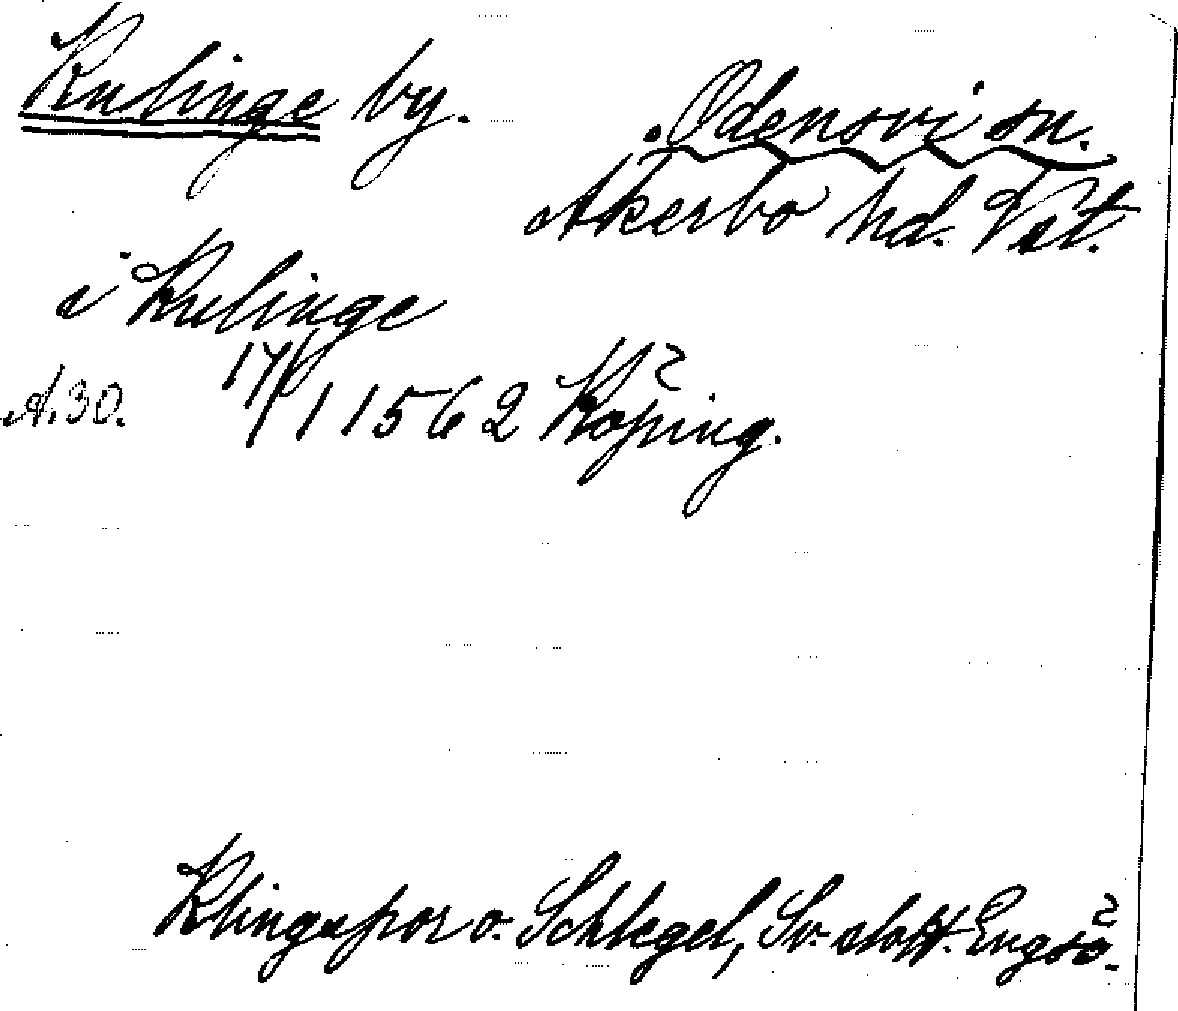 Kulinge by.
Odensvi sn.
Åkerbo hd. Vstt.
i Kulinge
A.30. 17/1 1562 Köping.
Klingspor o. Schlegel, Sv. slott. Engsö.